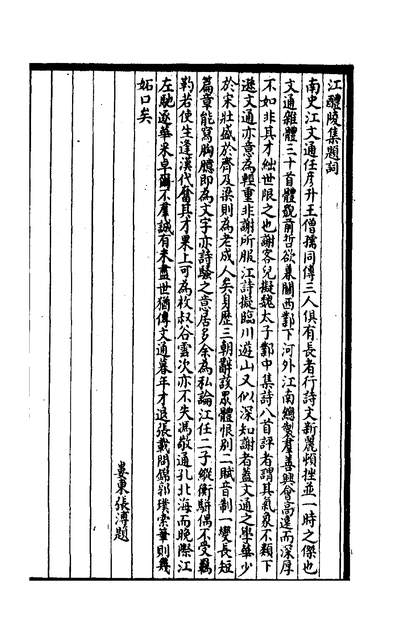 江醴陵集題詞
南史江文通任彥升王僧孺同傳三人俱有長者行詩文新麗頓挫並一時之傑也
文通雜體三十首體觀前哲欲兼關西鄴下河外江南總製羣善興會高遠而深厚
不如非其才絀世限之也謝客兒擬魏太子鄴中集詩八首評者謂其氣象不類下
遜文通亦意為輕重非謝所服江詩擬臨川遊山又似深知謝者蓋文通之學華少
於宋壯盛於齊及梁則為老成人矣身歷三朝辭該眾體恨別二賦音制一變長短
篇章能寫胸臆即為文字亦詩騷之意居多余為私論江任二子縱衡駢偶不受羈
靮若使生逢漢代奮其才果上可為枚叔谷雲次亦不失馮敬通孔北海而晚際江
左馳逐華采卓爾不羣誠有未盡世猶傳文通暮年才退張載問錦郭璞索筆則幾
妬口矣
婁東張溥題